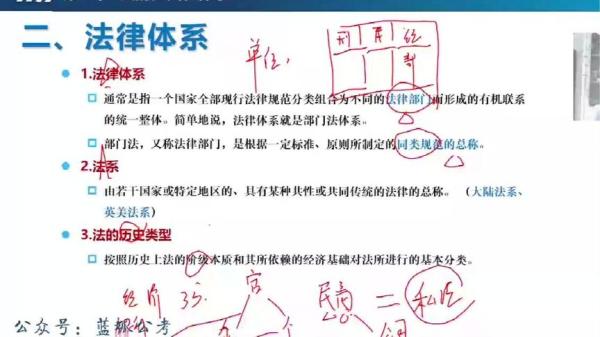 二、法律体系
单位
刑 民 经
1.法律体系
通常是指一个国家全部现行法律规范分类组合为不同的法律部门而形成的有机联系
的统一整体。简单地说，法律体系就是部门法体系。
部门法，又称法律部门，是根据一定标准、原则所制定的同类规范的总称。
2.法系
由若干国家或特定地区的、具有某种共性或共同传统的法律的总称。（大陆法系、
英美法系）
3.法的历史类型
按照历史上法的阶级本质和其所依赖的经济基础对法所进行的基本分类。
经阶 35. 官 民商 二 私法
公众号：蓝 公考